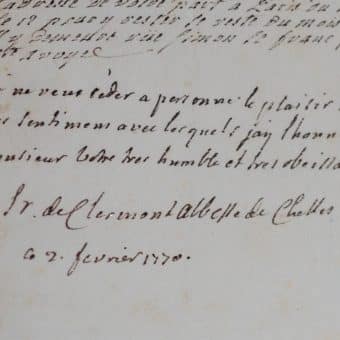 adresse de votre part a Paris ou
le 12 pour y rester le reste du mois
y demeure rue simon le franc p
st avoye
ne veux céder a personne le plaisir
sentimens avec lesquels jay lhonn
onsieur votre tres humble et tres obeissa
Sr. de Clermont abesse de Chelles
ce 2. fevrier 1770.